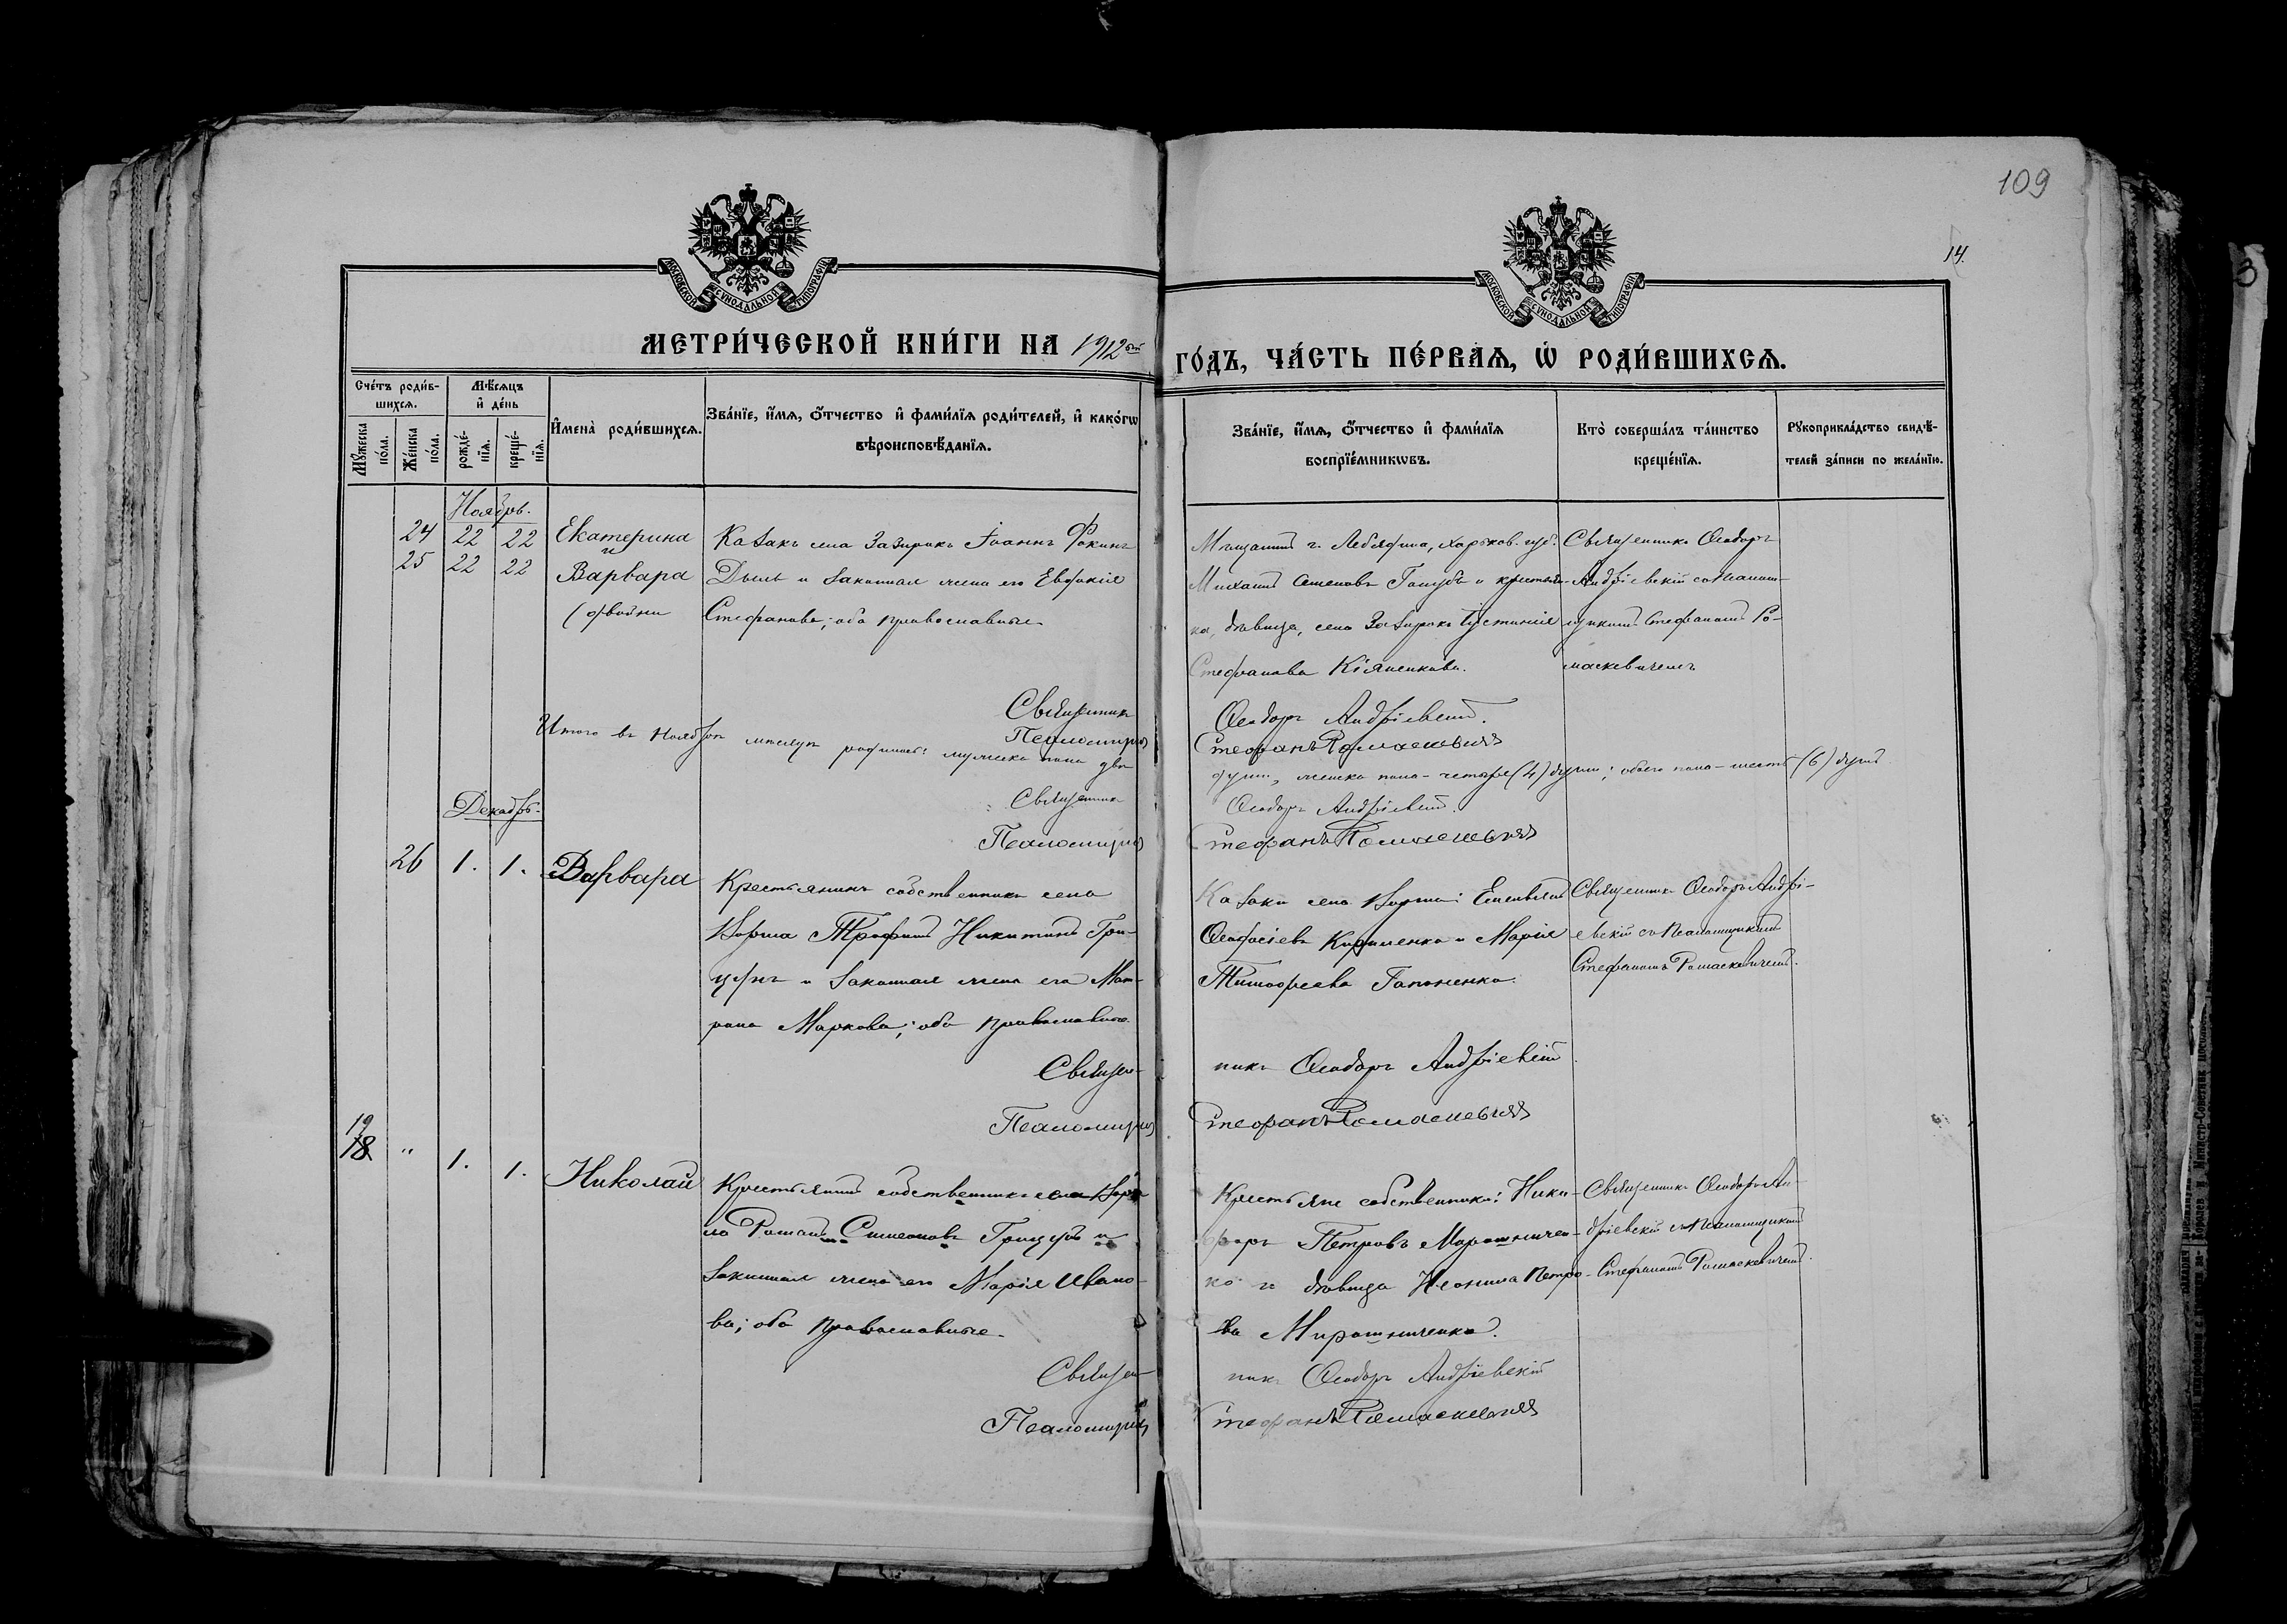 109
14.
МОСКОВСКОЙ СѴНОДАЛЬНОЙ ТИПОГРАФІИ
МОСКОВСКОЙ СѴНОДАЛЬНОЙ ТИПОГРАФІИ
МЕТРИ́ЧЕСКОЙ КНИ́ГИ НА 1912
ГО́ДЪ, ЧА́СТЬ ПЕ́РВАѦ, Ѡ҆ РОДИ́ВШИХСѦ.
Сче́тъ роди́в-
шихсѧ.
Мꙋ́жеска по́ла.
Же́нска по́ла.
Мѣ́сѧцъ
и҆ де́нь
рожде́-нїѧ.
креще́-нїѧ.
И҆мена̀ роди́вшихсѧ.
Зва́нїе, и҆́мѧ, ѻ҆́тчество и҆ фами́лїѧ роди́телей, и҆ како́гѡ
вѣроисповѣ́данїѧ.
Зва́нїе, и҆́мѧ, ѻ҆́тчество и҆ фами́лїѧ
воспрїе́мникѡвъ.
Кто̀ соверша́лъ та́инство
креще́нїѧ.
Рꙋкоприкла́дство свидѣ́-
телей за́писи по жела́нїю.
Ноябрь.
24 22 22 Екатерина
и
25 22 22 Варвара
(двойни
Казакъ села Зазирокъ Іоаннъ Фокинъ
и законная жена его Евфимія
Стефанова; оба православные
Мѣщанинъ г. Лебедина, Харьков. губ.
Михаилъ Семеновъ Голубъ и крестьян-
ка, дѣвица, села Зазирокъ Іустинія
Стефанова Кіяненкова.
Священникъ Ѳеодоръ
Андріевскій съ псалом-
щикомъ Стефаномъ Ро-
маскевичемъ
Священникъ Ѳеодоръ Андріевскій.
Псаломщикъ Стефанъ Ромаскевичъ
Итого въ Ноябрѣ мѣсяцѣ родилось: мужеска пола двѣ
души, женска пола - четыре (4) души; обоего пола - шесть (6) душъ
Священникъ Ѳеодоръ Андріевскій.
Псаломщикъ Стефанъ Ромаскевичъ
Декабрь.
26 1. 1. Варвара
Крестьянинъ собственникъ села
Трофимъ Никитинъ Гри-
и законная жена его Мат-
рона Маркова; оба православные.
Казаки села
Кириленко и Марія
Тимоѳеева Гапоненко.
Священникъ Ѳеодоръ Андрі-
евскій съ псаломщикомъ
Стефаномъ Ромаскевичемъ.
Священ-
никъ Ѳеодоръ Андріевскій
Псаломщикъ Стефанъ Ромаскевичъ
19
18 " 1. 1. Николай
Крестьянинъ собственникъ села
Романъ Симеоновъ и
законная жена его Марія Ивано-
ва; оба православные.
Крестьяне собственники: Ники-
форъ Петровъ Мирошничен-
ко и дѣвица Неонила Петро-
ва Мирошниченко.
Священникъ Ѳеодоръ Ан-
дріевскій съ псаломщикомъ
Стефаномъ Ромаскевичемъ.
Священ-
никъ Ѳеодоръ Андріевскій
Псаломщикъ Стефанъ Ромаскевичъ